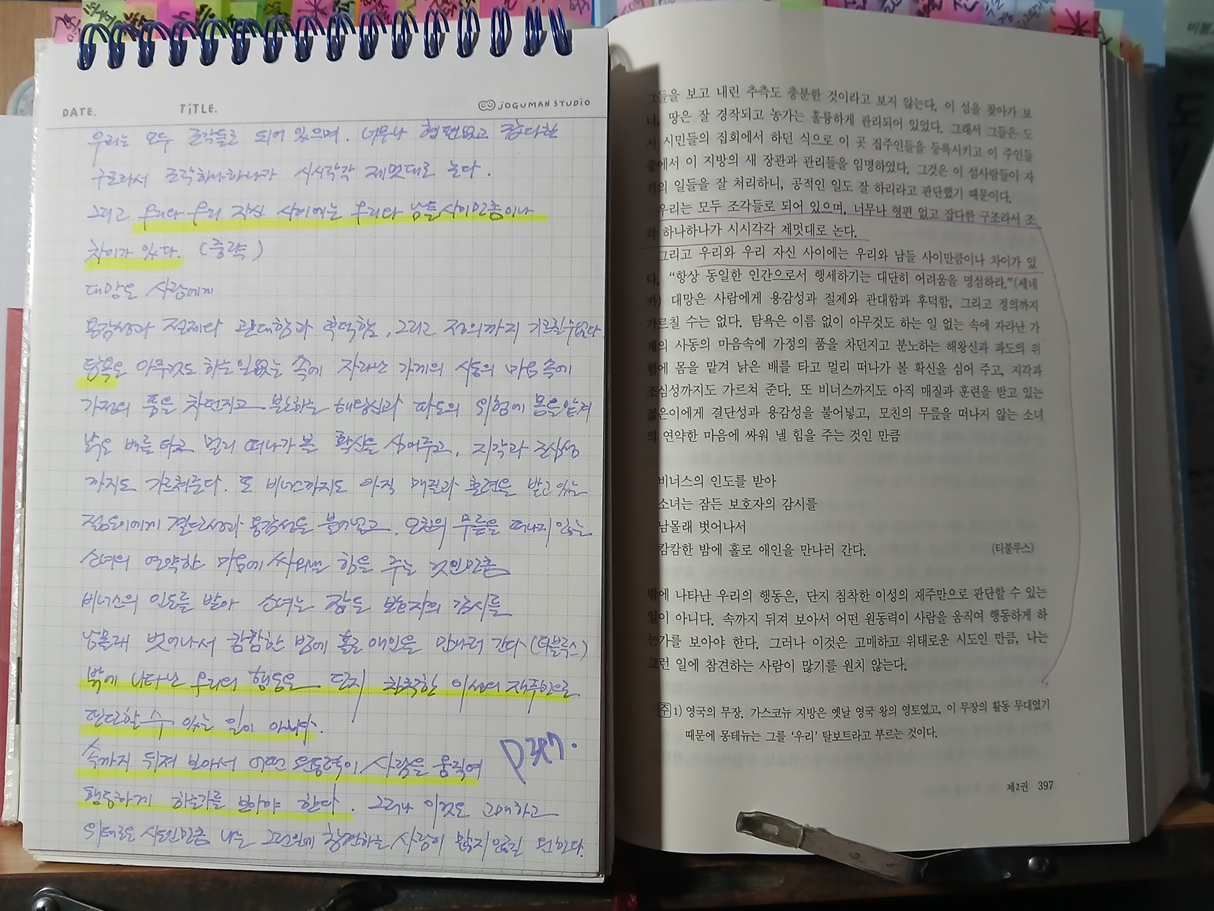 DATE.
TiTLE.
JOGUMAN STUDIO
우리는 모두 조각들로 되어 있으며, 너무나 형편없고 잡다한
구조라서 조각하나하나가 시시각각 제멋대로 논다.
그리고 우리와 우리 자신 사이에는 우리와 남들사이만큼이나
차이가 있다. (중략)
대망은 사람에게
용감성과 절제와 관대함과 후덕함, 그리고 정의까지 가르칠수없다
탐욕은 아무것도 하는일없는 속에 자라난 가게의 사동의 마음속에
가정의 품을 차던지고 분노하는 해왕신과 파도의 위험에 몸을맡겨
낡은 배를 타고 멀리 떠나가 볼 확신을 심어주고, 지각과 조심성
까지도 가르쳐준다. 또 비너스까지도 아직 매질과 훈련을 받고있는
젊은이에게 결단성과 용감성을 불어넣고, 모친의 무릎을 떠나지 않는
소녀의 연약한 마음에 싸워낼 힘을 주는 것인만큼
비너스의 인도를 받아 소녀는 잠든 보호자의 감시를
남몰래 벗어나서 캄캄한 밤에 홀로 애인을 만나러 간다 (티불루스)
밖에 나타난 우리의 행동은 단지 침착한 이성의 재주만으로
판단할 수 있는 일이 아니다.
속까지 뒤져 보아서 어떤 원동력이 사람을 움직여
행동하게 하는가를 보아야 한다. 그러나 이것은 고매하고
위태로운 시도인만큼 나는 그런일에 참견하는 사람이 많지 않길 원한다.
P397.
그들을 보고 내린 추측도 충분한 것이라고 보지 않는다. 이 섬을 찾아가 보
니, 땅은 잘 경작되고 농가는 훌륭하게 관리되어 있었다. 그래서 그들은 도
시 시민들의 집회에서 하던 식으로 이 곳 집주인들을 등록시키고 이 주인들
중에서 이 지방의 새 장관과 관리들을 임명하였다. 그것은 이 섬사람들이 자
기의 일들을 잘 처리하니, 공적인 일도 잘 하리라고 판단했기 때문이다.
우리는 모두 조각들로 되어 있으며, 너무나 형편 없고 잡다한 구조라서 조
각 하나하나가 시시각각 제멋대로 논다.
그리고 우리와 우리 자신 사이에는 우리와 남들 사이만큼이나 차이가 있
다. “항상 동일한 인간으로서 행세하기는 대단히 어려움을 명심하라.”(세네
카) 대망은 사람에게 용감성과 절제와 관대함과 후덕함, 그리고 정의까지
가르칠 수는 없다. 탐욕은 이름 없이 아무것도 하는 일 없는 속에 자라난 가
게의 사동의 마음속에 가정의 품을 차던지고 분노하는 해왕신과 파도의 위
험에 몸을 맡겨 낡은 배를 타고 멀리 떠나가 볼 확신을 심어 주고, 지각과
조심성까지도 가르쳐 준다. 또 비너스까지도 아직 매질과 훈련을 받고 있는
젊은이에게 결단성과 용감성을 불어넣고, 모친의 무릎을 떠나지 않는 소녀
의 연약한 마음에 싸워 낼 힘을 주는 것인 만큼
비너스의 인도를 받아
소녀는 잠든 보호자의 감시를
남몰래 벗어나서
캄캄한 밤에 홀로 애인을 만나러 간다. (티불루스)
밖에 나타난 우리의 행동은, 단지 침착한 이성의 재주만으로 판단할 수 있는
일이 아니다. 속까지 뒤져 보아서 어떤 원동력이 사람을 움직여 행동하게 하
는가를 보아야 한다. 그러나 이것은 고매하고 위태로운 시도인 만큼, 나는
그런 일에 참견하는 사람이 많기를 원치 않는다.
주 1) 영국의 무장. 가스코뉴 지방은 옛날 영국 왕의 영토였고, 이 무장의 활동 무대였기
때문에 몽테뉴는 그를 ‘우리’ 탈보트라고 부르는 것이다.
제2권 397